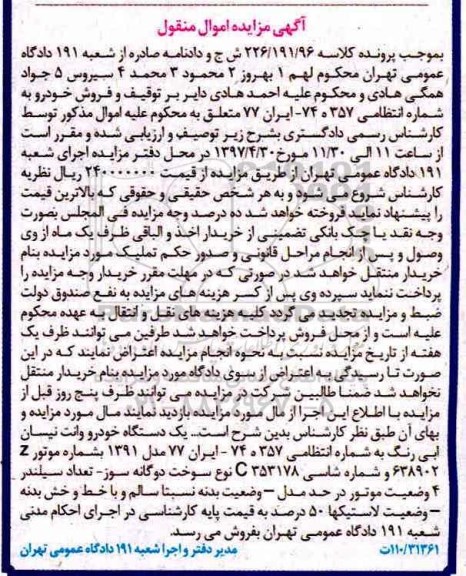 آگهی مزایده اموال منقول
بموجب پرونده کلاسه ۲۲۶/۱۹۱/۹۶ ش ج و دادنامه صادره از شعبه ۱۹۱ دادگاه
عمومی تهران محکوم لهم ۱ بهروز ۲ محمود ۳ محمد ۴ سیروس ۵ جواد
همگی هادی و محکوم علیه احمد هادی دایر بر توقیف و فروش خودرو به
شماره انتظامی ۳۵۷ ه ۷۴- ایران ۷۷ متعلق به محکوم علیه اموال مذکور توسط
کارشناس رسمی دادگستری بشرح زیر توصیف و ارزیابی شده و مقرر است
از ساعت ۱۱ الی ۱۱/۳۰ مورخ ۱۳۹۷/۴/۳۰ در محل دفتر مزایده اجرای شعبه
۱۹۱ دادگاه عمومی تهران از طریق مزایده از قیمت ۲۴۰۰۰۰۰۰۰ ریال نظریه
کارشناس شروع می شود و به هر شخص حقیقی و حقوقی که بالاترین قیمت
را پیشنهاد نماید فروخته خواهد شد ده درصد وجه مزایده فی المجلس بصورت
وجه نقد یا چک بانکی تضمینی از خریدار اخذ و الباقی ظرف یک ماه از وی
وصول و پس از انجام مراحل قانونی و صدور حکم تملیک مورد مزایده بنام
خریدار منتقل خواهد شد در صورتی که در مهلت مقرر خریدار وجه مزایده را
پرداخت ننماید سپرده وی پس از کسر هزینه های مزایده به نفع صندوق دولت
ضبط و مزایده تجدید می گردد کلیه هزینه های نقل و انتقال به عهده محکوم
علیه است و از محل فروش پرداخت خواهد شد طرفین می توانند ظرف یک
هفته از تاریخ مزایده نسبت به نحوه انجام مزایده اعتراض نمایند که در این
صورت تا رسیدگی به اعتراض از سوی دادگاه مورد مزایده بنام خریدار منتقل
نخواهد شد ضمنا طالبین شرکت در مزایده می توانند ظرف پنج روز قبل از
مزایده با اطلاع این اجرا از مال مورد مزایده بازدید نمایند مال مورد مزایده و
بهای آن طبق نظر کارشناس بدین شرح است... یک دستگاه خودرو وانت نیسان
ابی رنگ به شماره انتظامی ۳۵۷ ه ۷۴ - ایران ۷۷ مدل ۱۳۹۱ بشماره موتور Z
۶۳۸۹۰۲ و شماره شاسی C ۳۵۳۱۷۸ نوع سوخت دوگانه سوز- تعداد سیلندر
۴ وضعیت موتور در حد مدل - وضعیت بدنه نسبتا سالم و با خط و خش بدنه
- وضعیت لاستیکها ۵۰ درصد به قیمت پایه کارشناسی در اجرای احکام مدنی
شعبه ۱۹۱ دادگاه عمومی تهران بفروش می رسد.
۱۱۰/۳۱۳۶۱ت مدیر دفتر و اجرا شعبه ۱۹۱ دادگاه عمومی تهران